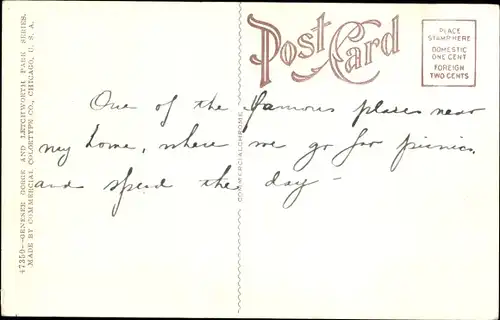 47350—GENESEE GORGE AND LETCHWORTH PARK SERIES.
MADE BY COMMERCIAL COLORTYPE CO., CHICAGO, U. S. A.
Post Card
PLACE
STAMP HERE
DOMESTIC
ONE CENT
FOREIGN
TWO CENTS
COMMERCIALCHROME
One of the famous places near
my home, where we go for picnics
and spend the day —